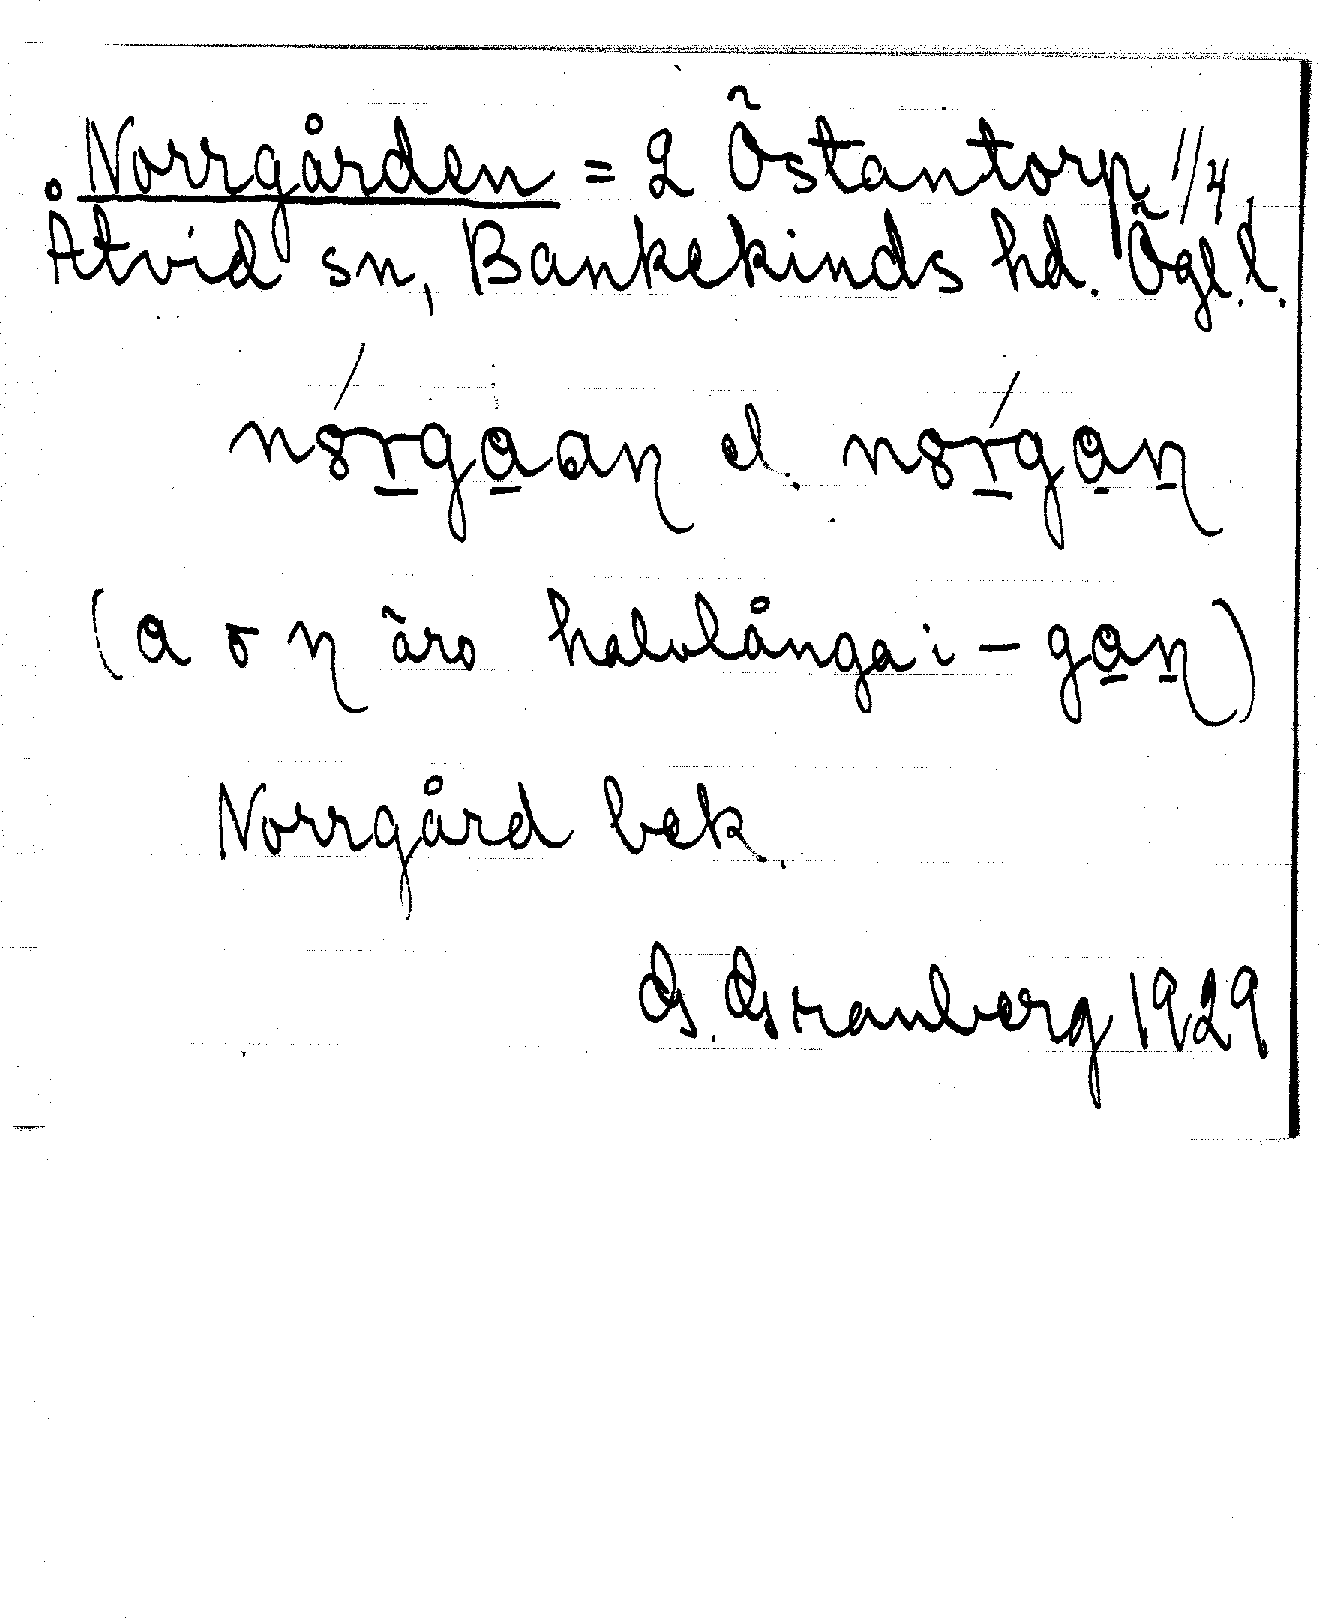 Norrgården = 2 Östantorp 1/4
Åtvid sn, Bankekinds hd. Ögl.l.
nørgaan el. nørgan
(a o n äro halvlånga i - gan)
Norrgård bek.
G. Granberg 1929